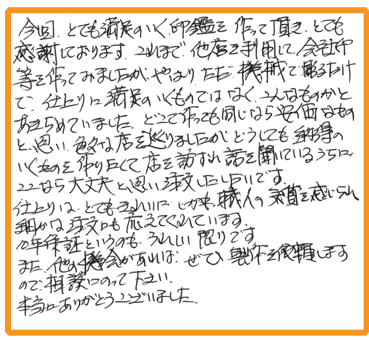 今回、とても満足のいく印鑑を作って頂き、とても
感謝しております。これまで、他店を利用して、会社印
等を作ってみましたが、やはりただ機械で彫るだけ
で、仕上りに満足のいくものではなく、こんなものかと
あきらめていました。どこで作っても同じなら安価なもの
と思い、色々な店を巡りましたが、どうしても納得の
いくものを作りたくて店を訪ずれ話を聞いているうちに
ここなら大丈夫と思い注文したしだいです。
仕上りは、とてもきれいにしかも、職人の実質を感じられ
細かな注文にも応えてくれています。
10年保証というのも、うれしい限りです
また、他の機会があれば、ぜひ製作を依頼します
ので相談にのって下さい。
本当にありがとうございました。